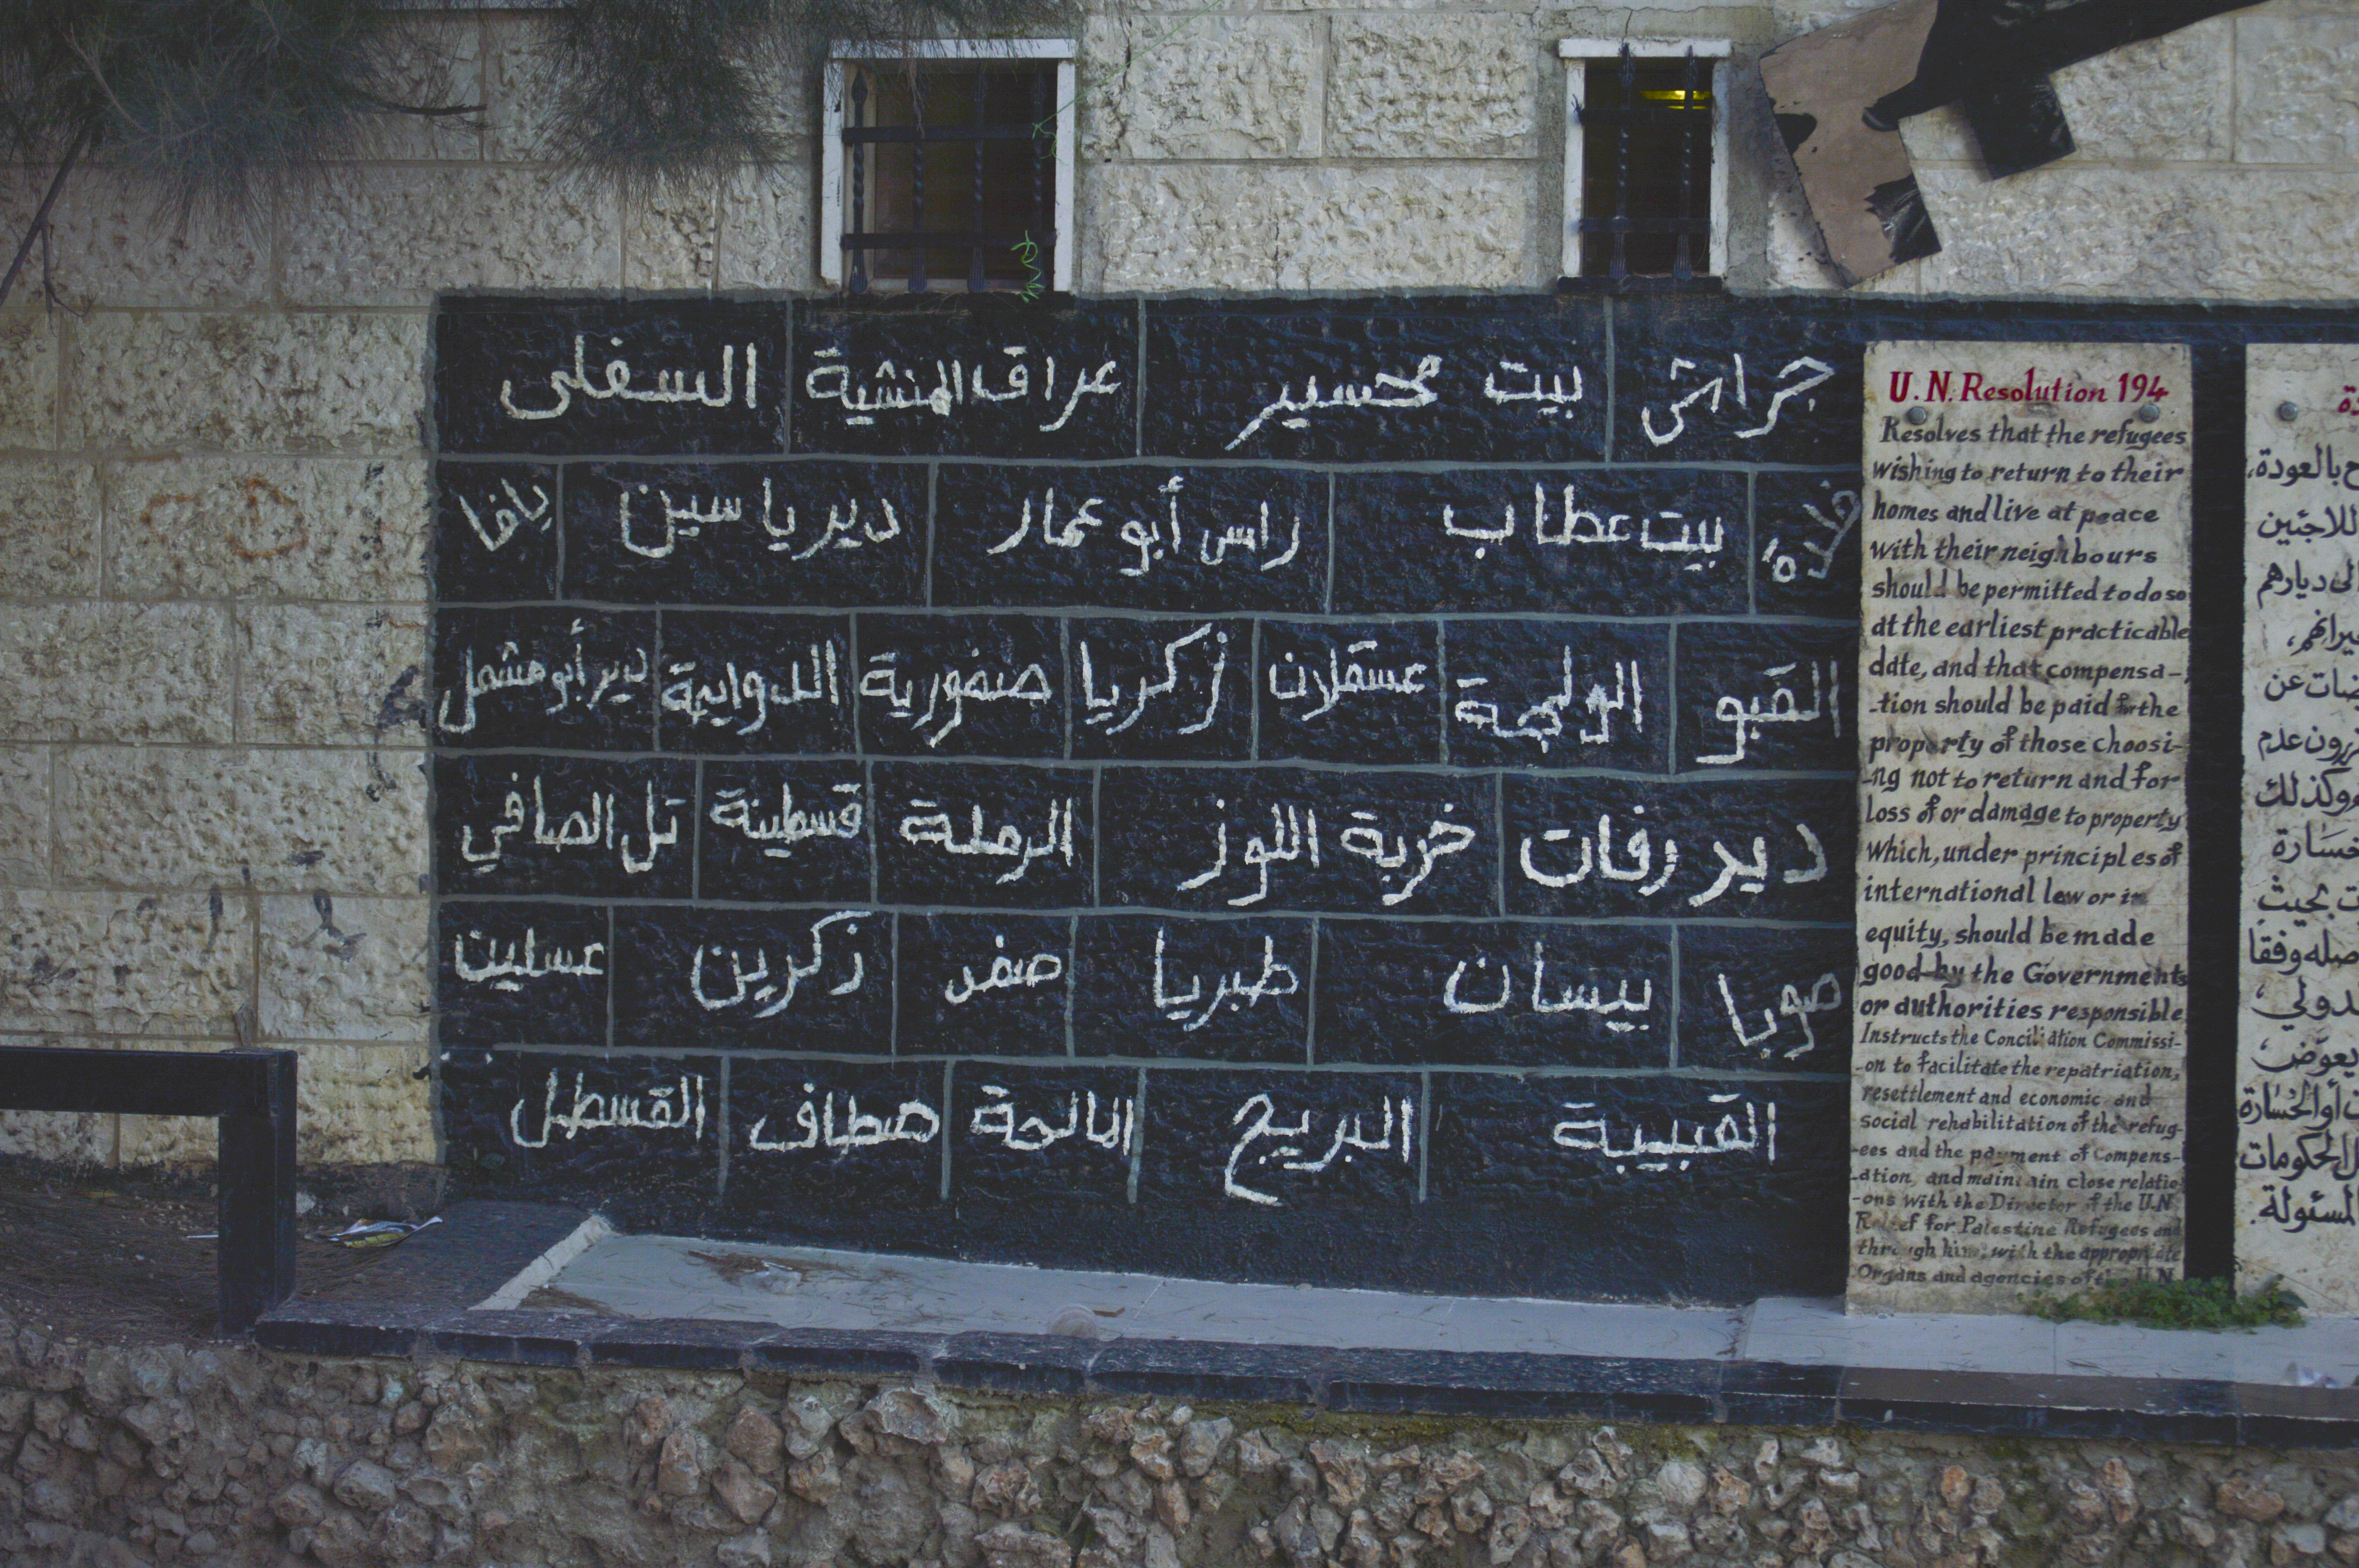 جراش بيت محسير عراق المنشية السفلى
خلدة بيت عطاب راس أبو عمار دير ياسين يافا
القبو الولجة عسقلان زكريا صفورية الدوايمة دير أبو مشعل
دير رفات خربة اللوز الرملة قسطينة تل الصافي
صوبا بيسان طبريا صفد ذكرين عسلين
القبيبة البريج المالحة صطاف القسطل
U.N. Resolution 194
Resolves that the refugees
wishing to return to their
homes and live at peace
with their neighbours
should be permitted to do so
at the earliest practicable
date, and that compensa-
-tion should be paid for the
property of those choosi-
-ng not to return and for
loss of or damage to property
which, under principles of
international law or in
equity, should be made
good by the Governments
or authorities responsible
Instructs the Conciliation Commissi-
-on to facilitate the repatriation,
resettlement and economic and
social rehabilitation of the refug-
-ees and the payment of Compens-
-ation, and maintain close relatio-
-ons with the Director of the U.N
Relief for Palestine Refugees and
through him, with the appropriate
Organs and agencies of the U.N.
بالعودة،
للاجئين
ديارهم
عن
عدم
وكذلك
خسارة
بحيث
وفقا
يعوض
أو الخسارة
الحكومات
المسئولة.